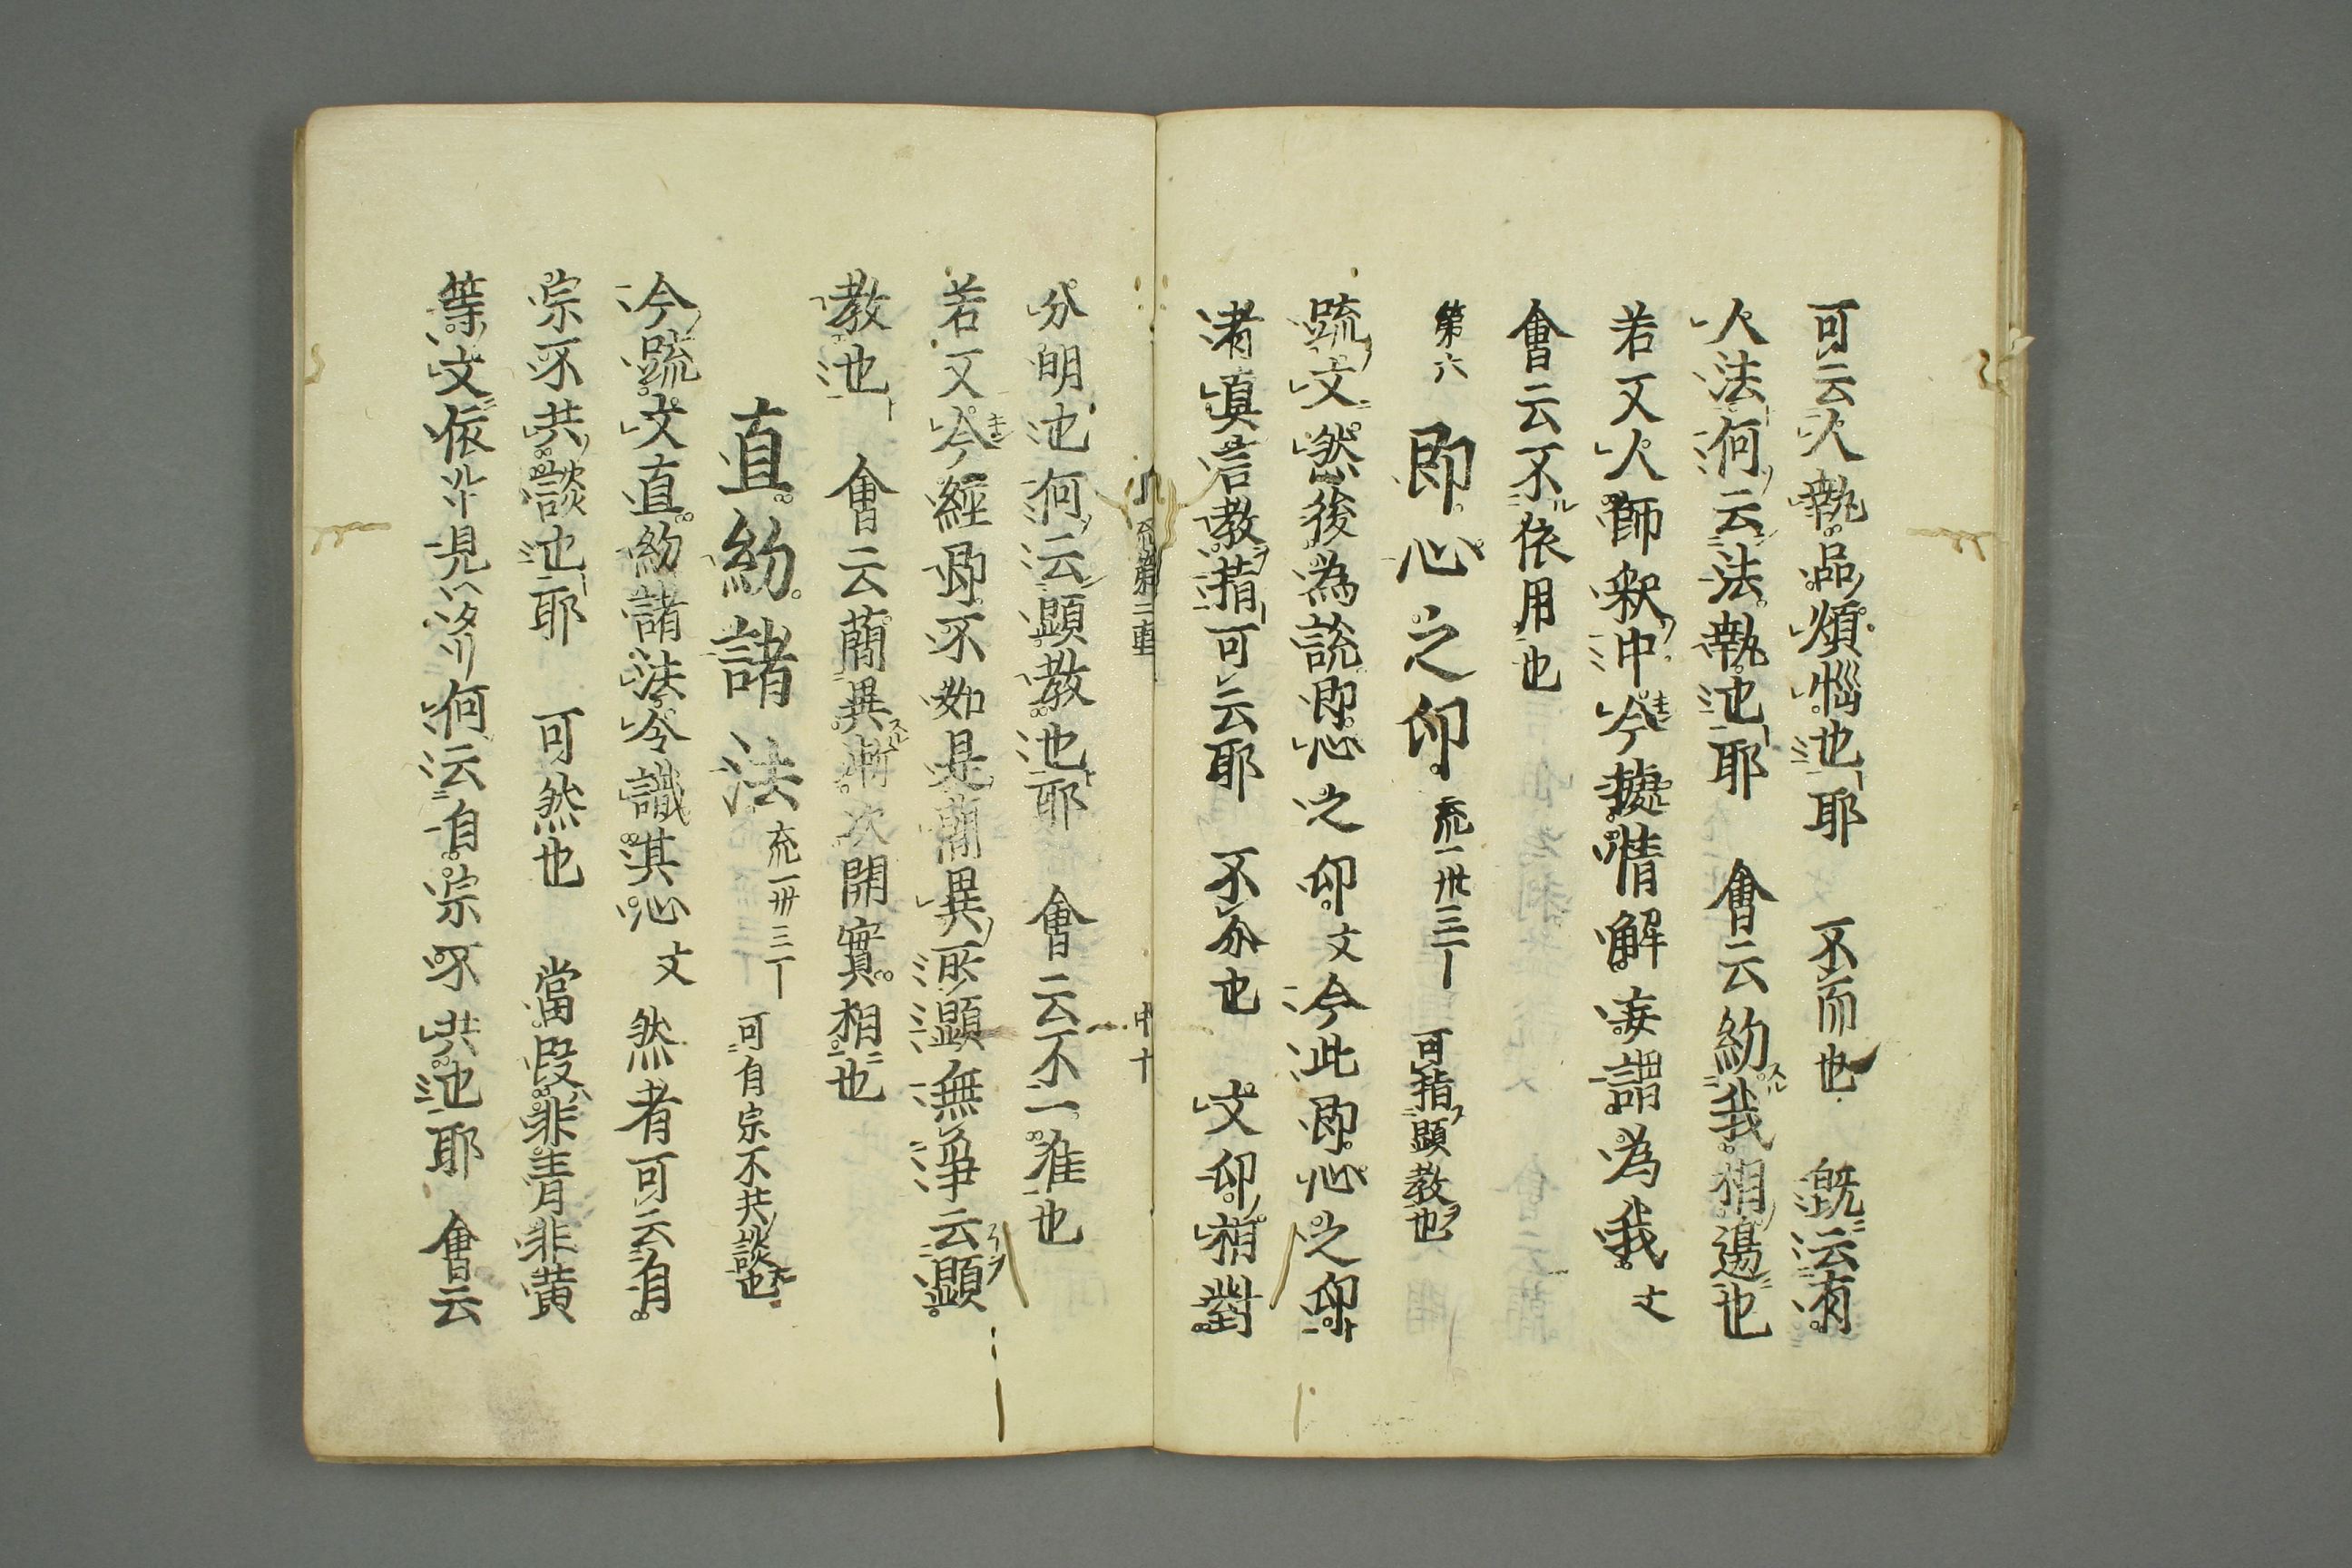 可云人執品煩惱也耶　不而也　既云有
人法何云法執也耶　會云約我相邊也
若又人師釈中今擬情解妄謂為我文
會云不依用也
第六　即心之印　充一卅三丁　可指顕教也
疏文然後為説即心之印文今此即心之印
者真言教指可云耶　不尓也　文印相對
分明也何云顕教也耶　會云不一准也
若又今經即不如是簡異所顕無諍云顕
教也　會云簡異漸次開實相也
直約諸法　充一卅三丁　可自宗不共談也
今疏文直約諸法令識其心文　然者可云自
宗不共談也耶　可然也　當段非青非黄
等文依何云自宗不共也耶　會云
第二重
中十